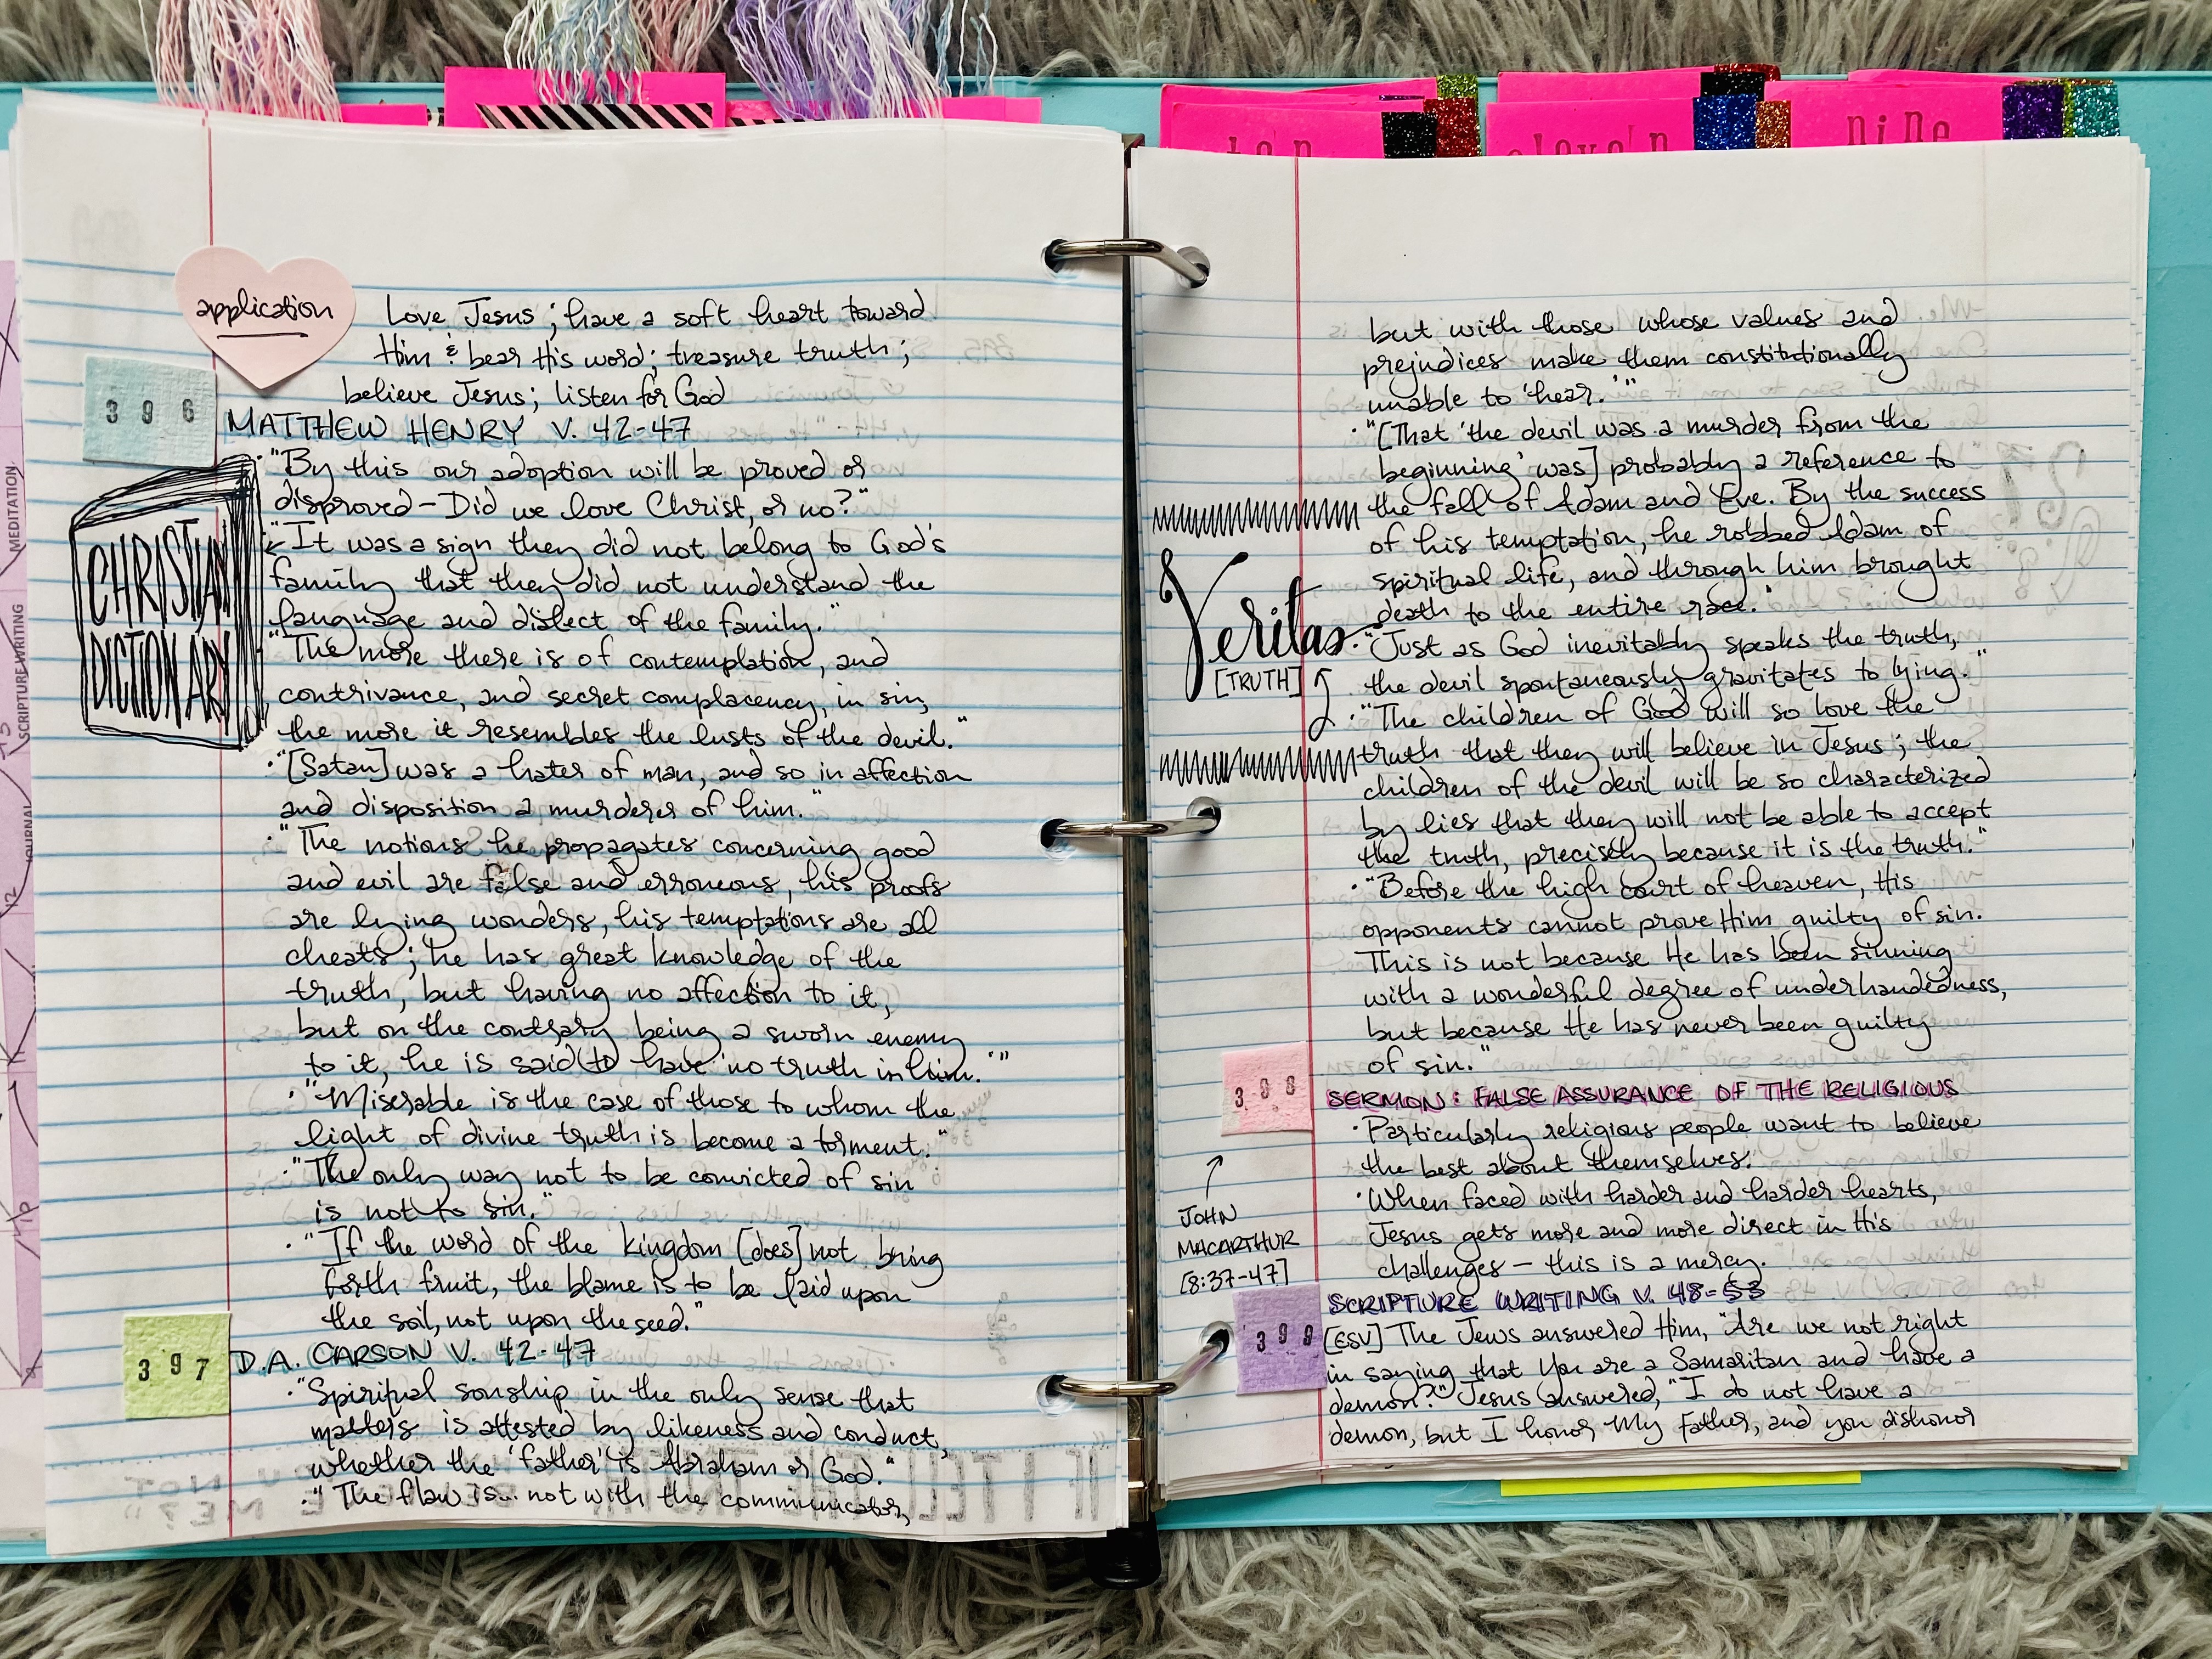 ten
eleve'n
nine
MEDITATION
SCRIPTURE WRITING
JOURNAL
application
Love Jesus; have a soft heart toward
Him & bear His word; treasure truth;
believe Jesus; listen for God
396
MATTHEW HENRY V. 42-47
CHRISTIAN
DICTIONARY
"By this our adoption will be proved or
disproved - Did we love Christ, or no?"
"It was a sign they did not belong to God's
family that they did not understand the
language and dialect of the family."
"The more there is of contemplation, and
contrivance, and secret complacency, in sin,
the more it resembles the lusts of the devil."
· "[Satan] was a hater of man, and so in affection
and disposition a murderer of him."
· "The notions he propagates concerning good
and evil are false and erroneous, his proofs
are lying wonders, his temptations are all
cheats; he has great knowledge of the
truth, but having no affection to it,
but on the contrary being a sworn enemy
to it, he is said to have 'no truth in him.'"
· "Miserable is the case of those to whom the
light of divine truth is become a torment."
· "The only way not to be convicted of sin
is not to sin."
· "If the word of the kingdom [does] not bring
forth fruit, the blame is to be laid upon
the soil, not upon the seed."
397
D.A. CARSON V. 42-47
· "Spiritual sonship in the only sense that
matters is attested by likeness and conduct,
whether the 'father' is Abraham or God."
· "The flaw is... not with the communicator,
but with those whose values and
prejudices make them constitutionally
unable to 'hear.'"
· "[That 'the devil was a murder from the
beginning' was] probably a reference to
the fall of Adam and Eve. By the success
of his temptation, he robbed Adam of
spiritual life, and through him brought
death to the entire race."
Veritas
[TRUTH]
· "Just as God inevitably speaks the truth,
the devil spontaneously gravitates to lying."
· "The children of God will so love the
truth that they will believe in Jesus; the
children of the devil will be so characterized
by lies that they will not be able to accept
the truth, precisely because it is the truth."
· "Before the high court of heaven, His
opponents cannot prove Him guilty of sin.
This is not because He has been sinning
with a wonderful degree of underhandedness,
but because He has never been guilty
of sin."
398
SERMON: FALSE ASSURANCE OF THE RELIGIOUS
· Particularly religious people want to believe
the best about themselves.
· When faced with harder and harder hearts,
Jesus gets more and more direct in His
challenges - this is a mercy.
JOHN
MACARTHUR
[8:37-47]
SCRIPTURE WRITING V. 48-53
399
[ESV] The Jews answered Him, "Are we not right
in saying that You are a Samaritan and have a
demon?" Jesus answered, "I do not have a
demon, but I honor My Father, and you dishonor